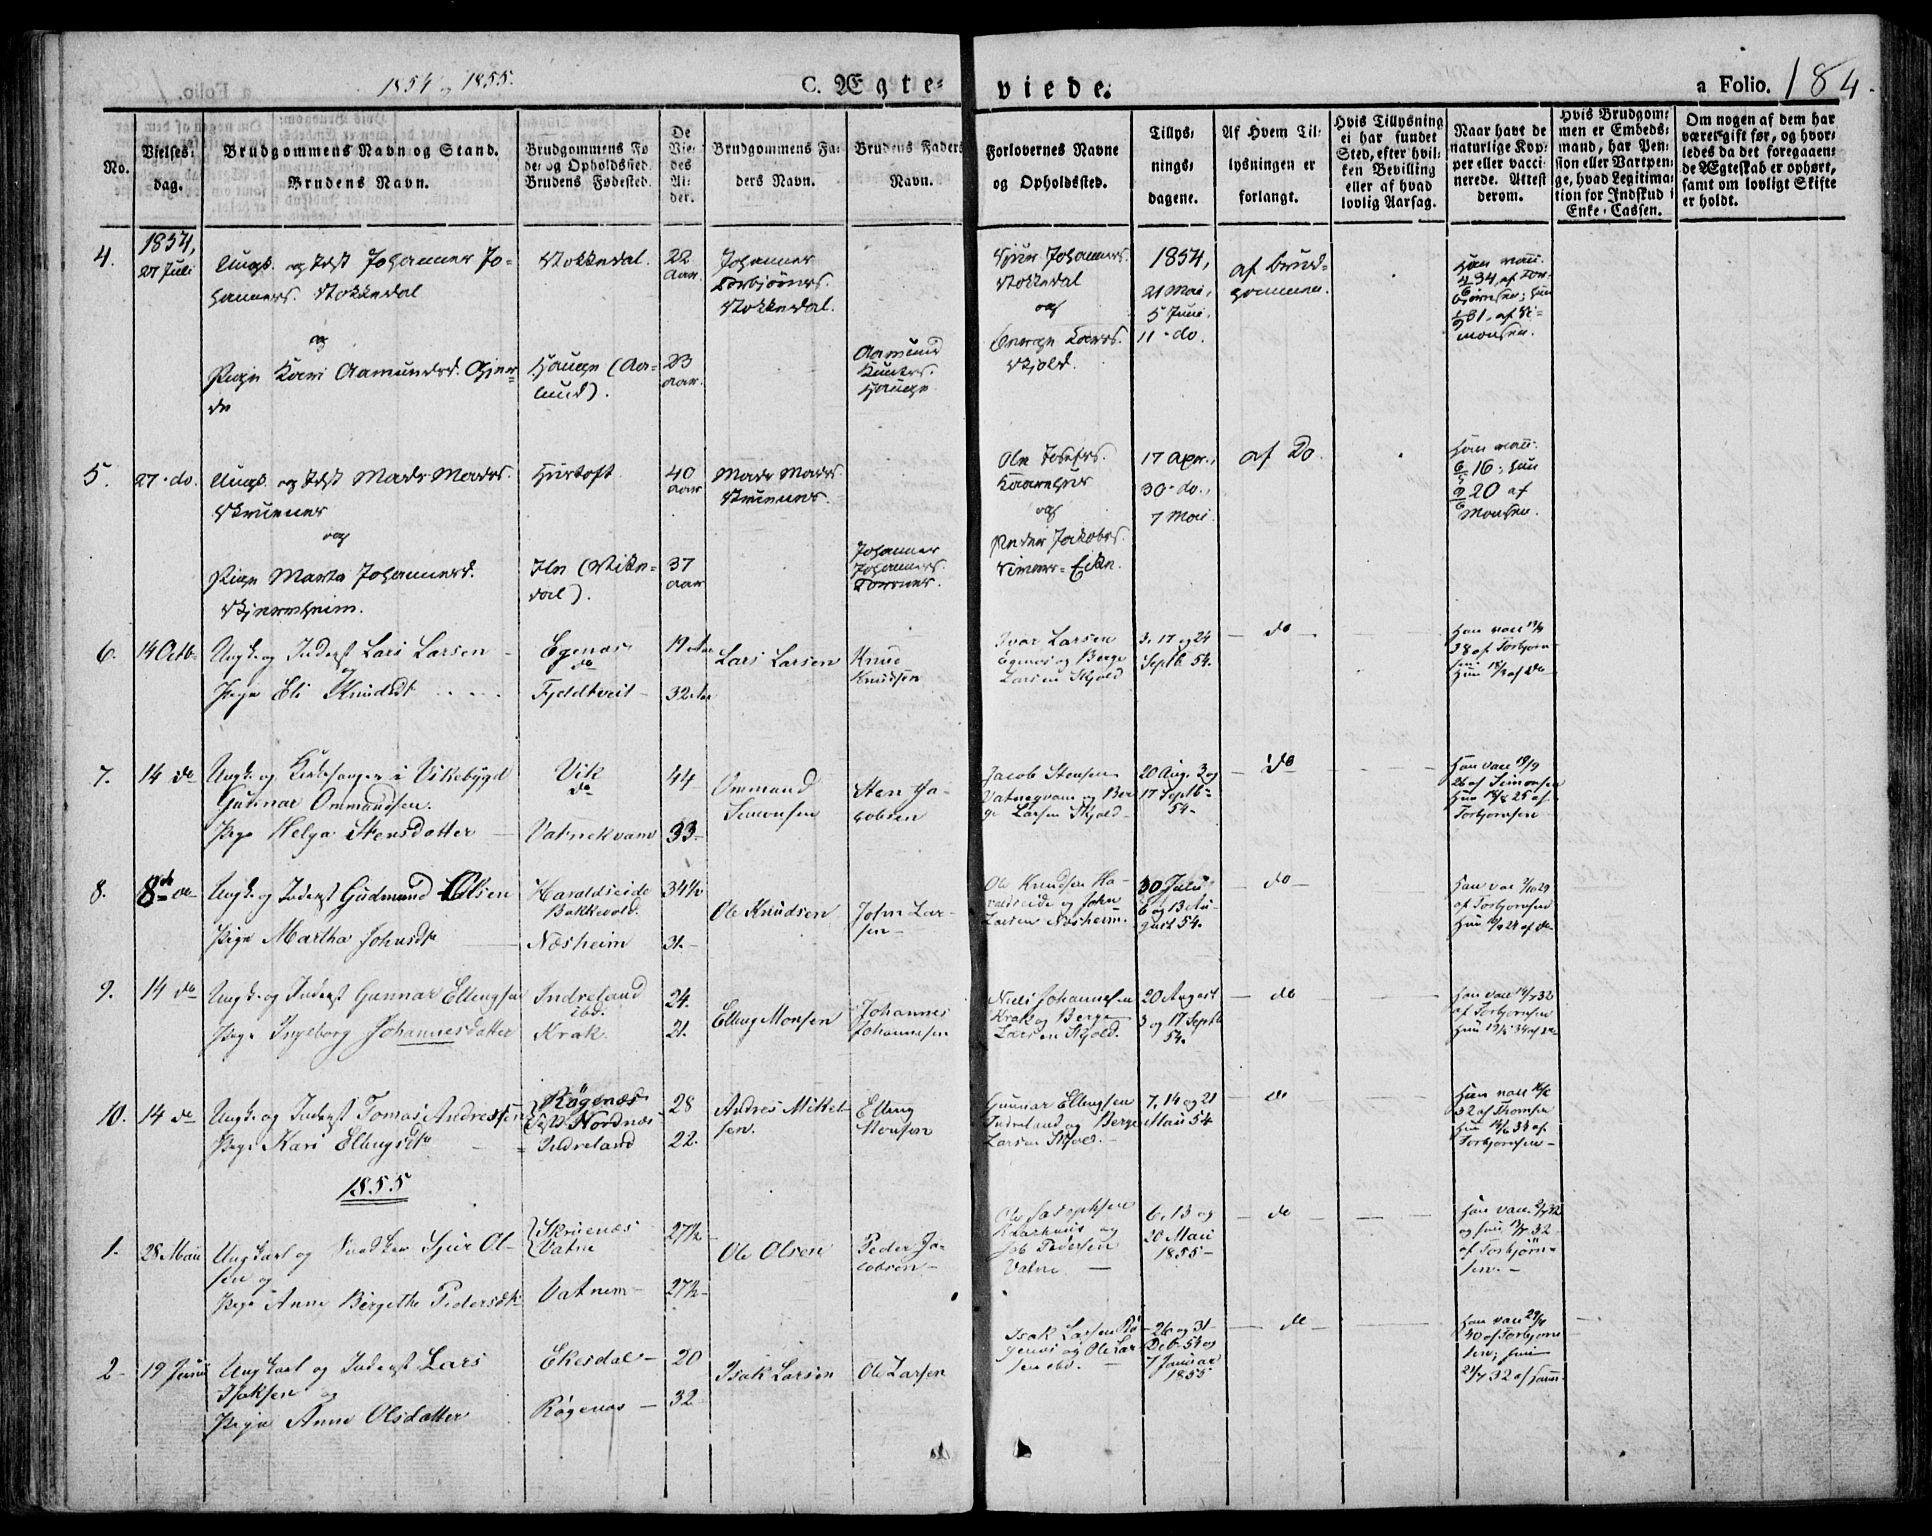 1854 og 1855.
C. Ægteviede.
a Folio. 184.
No.
Vielses-
dag.
Brudgommens Navn og Stand.
Brudens Navn.
Brudgommens Fø-
de- og Opholdssted.
Brudens Fødested.
De
Vie-
des
Al-
der.
Brudgommens Fa-
ders Navn.
Brudens Faders
Navn.
Forlovernes Navne
og Opholdssted.
Tillys-
nings-
dagene.
Af Hvem Til-
lysningen er
forlangt.
Hvis Tillysning
ei har fundet
Sted, efter hvil-
ken Bevilling
eller af hvad
lovlig Aarsag.
Naar havt de
naturlige Kop-
per eller vacci-
nerede. Attest
derom.
Hvis Brudgom-
men er Embeds-
mand, har Pen-
sion eller Vartpen-
ge, hvad Legitima-
tion for Indskud i
Enke-Cassen.
Om nogen af dem har
været gift før, og hvor-
ledes da det foregaaen-
de Ægteskab er ophørt,
samt om lovligt Skifte
er holdt.
4.
1854,
27 Juli
Ungk. og Idst Johannes Jo-
hanness. Stokkedal
og
Pige Kari Aamundsd. Gjer-
de
Stokkedal.
Hauge (Aa-
lund).
22
aar.
23
aar.
Johannes
Torbjörns.
Stokkedal.
Aamund
Knuts.
Hauge
Sjur Johanness.
Stokkedal
og
Berge Larss.
Skjold.
1854,
21 Mai,
5 Juni,
11 - do.
af Brud-
gommen.
Han vacc.
34, af Tor-
bjørnsen; hun
31, af Si-
monsen.
5.
27 - do.
Ungk. og Idst Mads Madss.
Skruenes
og
Pige Marta Johannesd.
Skjermheim.
Hustoft.
Ile (Vike-
dal).
40
aar
37
aar
Mads Madss.
Skruenes.
Johannes
Johanness.
Ole Josefs.
Kaarehus
og
Peder Jakobs.
Eike.
17 Apr.,
30 - do.,
7 Mai.
af Do
Han vacc.
16; hun
20 af
Monsen.
6.
14 Octb
Ungk. og Inderst Lars Larsen
og
Pige Eli Knudsdt
Egenæs
do
Fjeldtveit
19 Aar
32 Aar
Lars Larsen
Knud
Knudsen
Ivar Larsen
Egenes og Berge
Larsen Skjold
3, 17 og 24
Septb. 54.
do
Han vacc
38 af Torbjørn-
sen.
Hun af do
7.
14 do
Ungk. og Kirkesanger i Vikebygd
Gunnar Ommundsen.
Pige Helga Stensdatter
Vik
do
Vatnekvam
44
33
Ommund
Simonsen
Sten Ja-
cobsen
Jacob Stensen
Vatneqvam og Ber
ge Larsen Skjold
20 Aug. 3 og
17 Septb
54.
do
Han vacc 19/9
26 af Simonsen
Hun 25 af
Torbjørnsen
8.
8de do
Ungk. og Inderst Gudmund Olsen
Pige Martha Johnsdt
Haraldseide
Bakkevold.
Næsheim
34½
31.
Ole Knudsen
John Lar-
sen
Ole Knudsen Ha-
raldseide og John
Larsen Næsheim.
30 Juli
6 og 13 Au-
gust 54.
do
Han vac 29
af Torbjørnsen
Hun 24 af do
9.
14 do
Ungk. og Inderst Gunnar Ellingsen
Pige Ingeborg Johannesdatter
Indreland
ibd.
Krak.
24.
21.
Elling Monsen
Johannes
Johannesen
Niels Johannesen
Krak og Berge
Larsen Skjold.
20 August
3 og 17 Septb
54.
do
Han vacc 32
af Torbjørnsen
Hun 34 af do
10.
14 do
Ungk. og Inderst Tomas Andresen
Pige Kari Ellingsdt
Røgenæs
Nordnæs
Indreland
28
22.
Andres Mikel
sen.
Elling
Monsen
Gunnar Ellingsen
Indreland og Berge
Larsen Skjold.
7, 14 og 21
Mai 54
do
Han vacc
32 af Thomsen
Hun 34 af
Torbjørnsen
1855
1.
28 Mai
Ungkarl og Sjur Ol-
sen og
Pige Anne Bergethe Pedersdt
Skruenæs
Vatne
Vatnem
27½
27½
Ole Olsen
Peder Ja-
cobsen
Ole Josephsen
Kaarhuus og
Job Pedersen
Vatne.
6, 13 og
20 Mai
1855
do
Han vacc 32
og hun 32
af Torbjørn-
sen.
2
19 Juni
Ungkarl og Inderst Lars
Isaksen og
Pige Anne Olsdatter
Ekesdal
Røgenæs
20
32
Isak Larsen
Ole Larsen
Isak Larsen Rø
genes og Ole Lar
sen ibd.
26 og 31
Decb. 54 og
7 Januar
1855
do
Han vacc
30 af Torbjørn
sen; hun
32 af